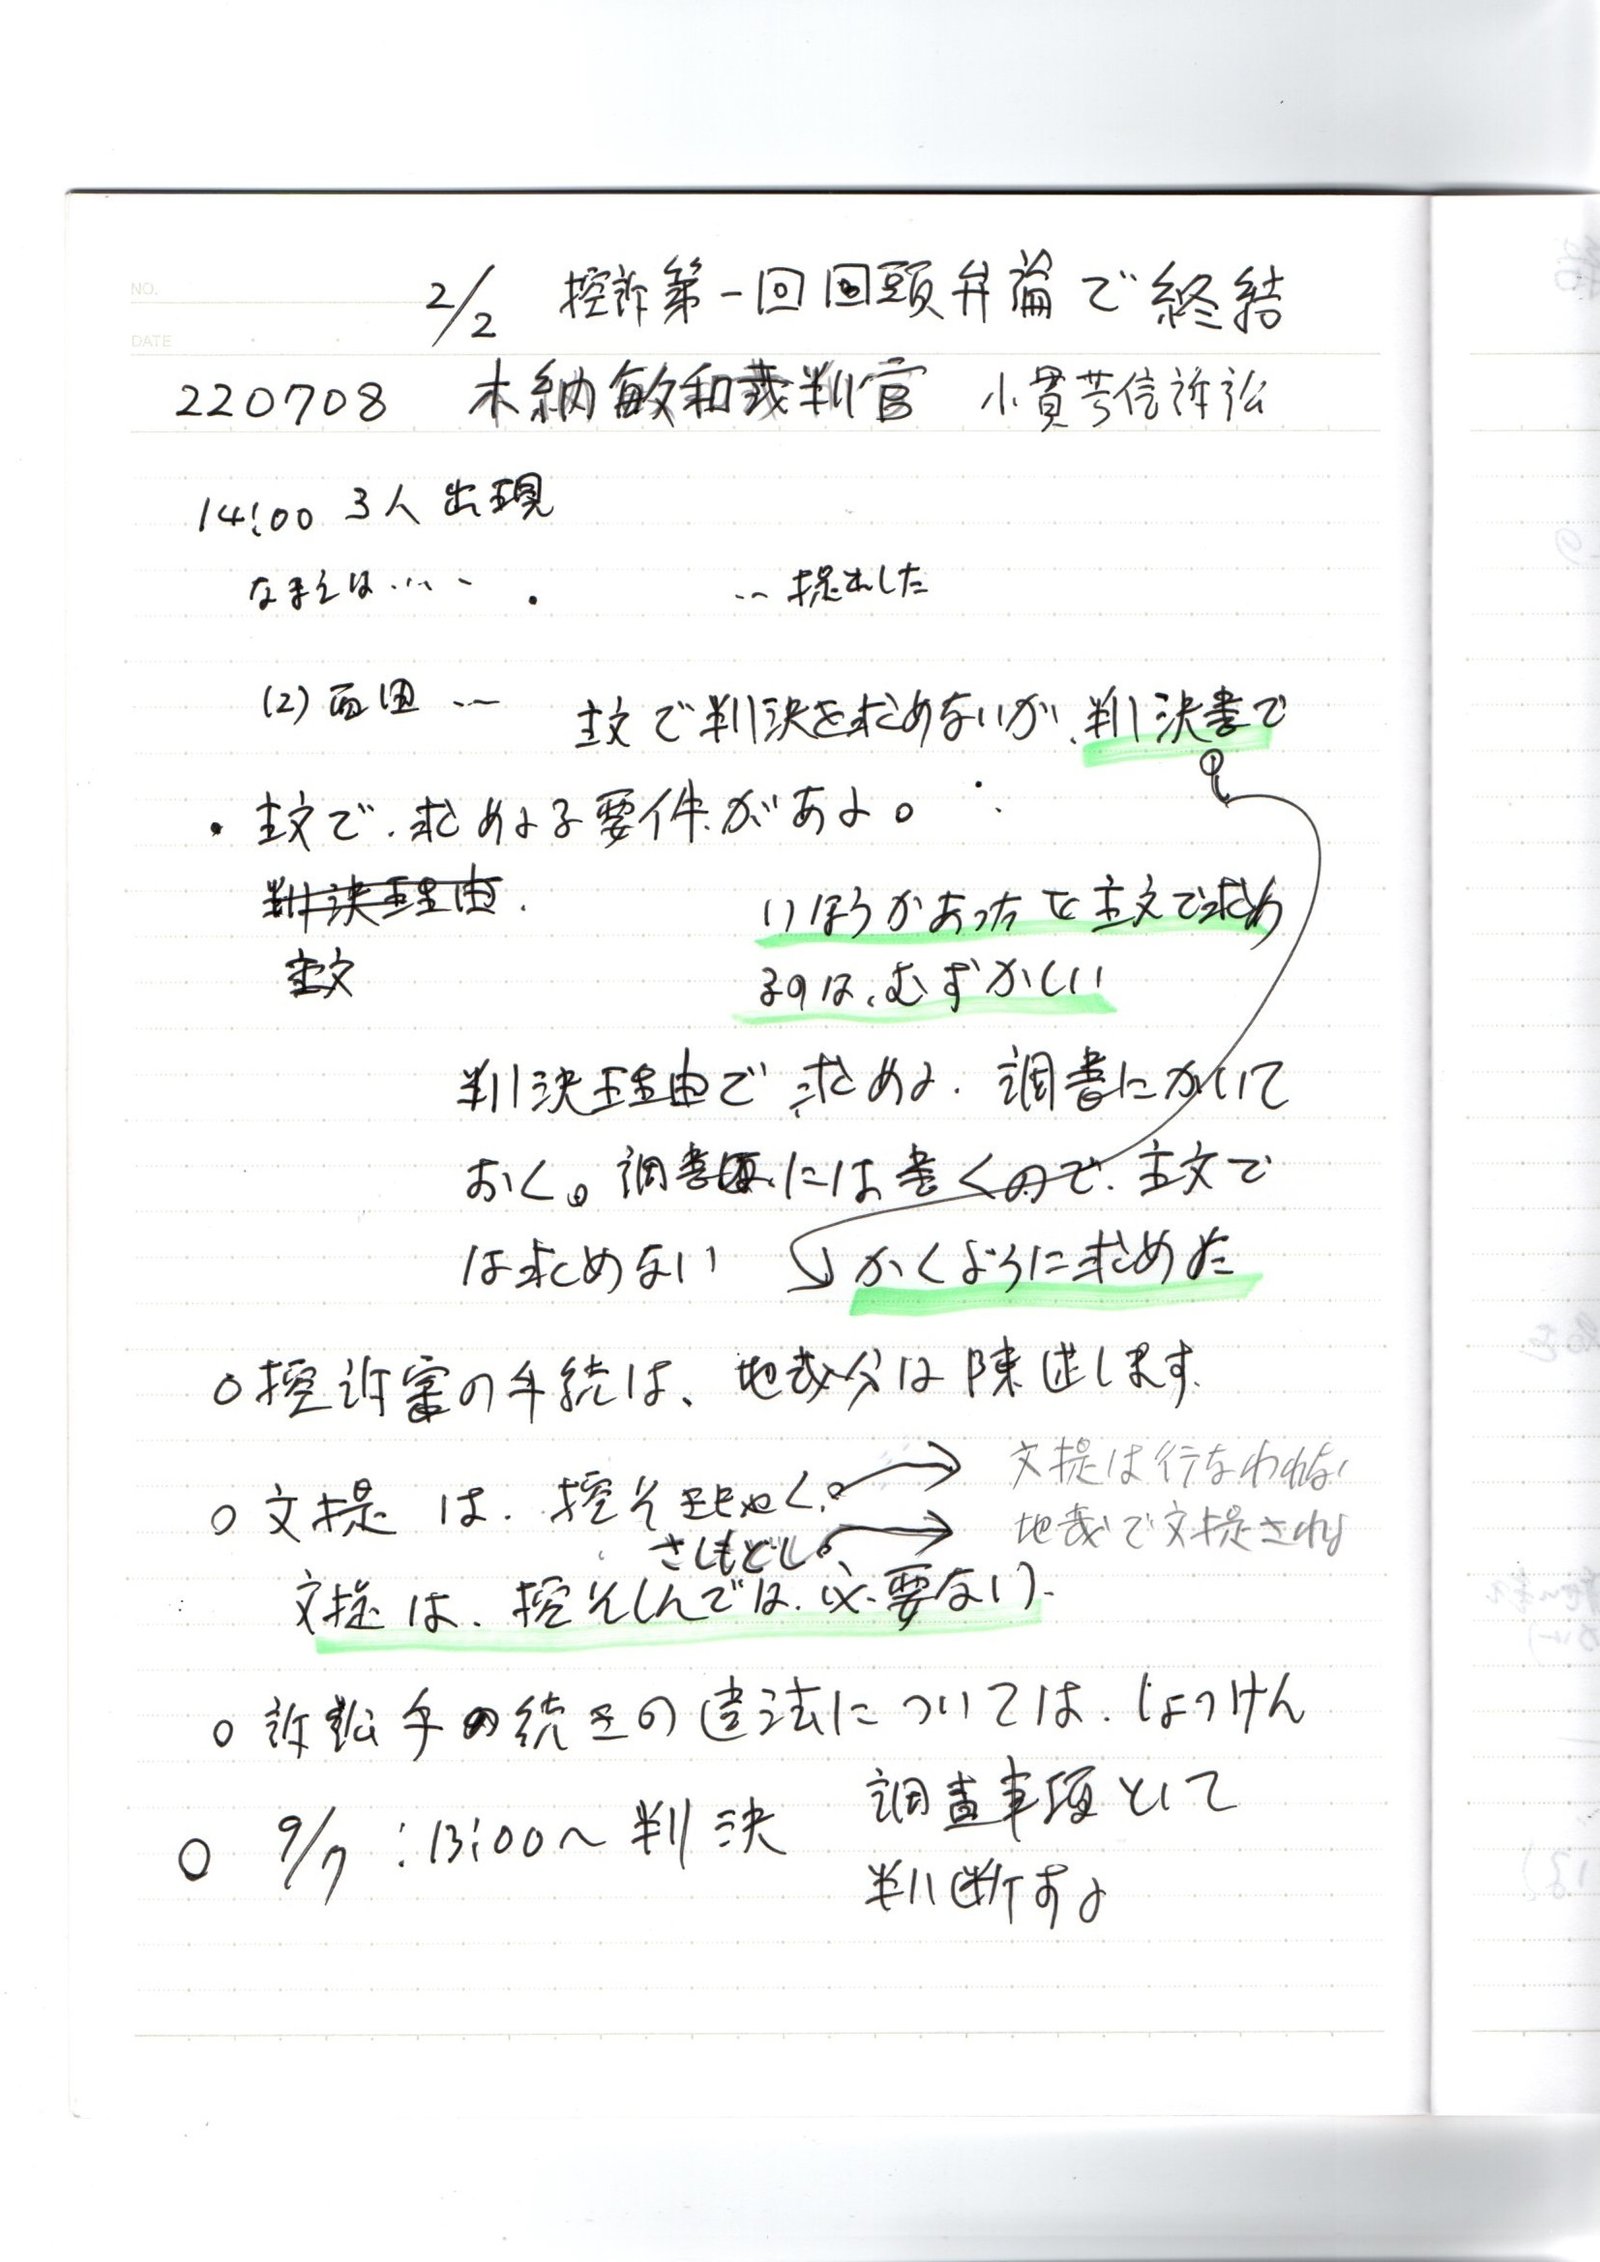 NO.
2/2 控訴第一回口頭弁論で終結
DATE
220708 木納敏和裁判官 小貫芳信訴訟
14:00 3人出現
なまえは…… … 提出した
(2) … 主文で判決を求めないが、判決書で
・主文で、求める要件がある。
判決理由.
いほうがあったを主文で求め
主文
るのは、むずかしい
判決理由で求める. 調書にかいて
おく。調書には書くので、主文で
は求めない かくように求めた
○控訴審の手続は、地裁分は陳述します.
○文提は、控そ
文提は行なわれない
さしもどし
地裁で文提される
文提は、控そしんでは、必要ない.
○訴訟手続きの違法については、しょっけん
調査事項として
○ 9/7 :13:00〜判決
判断する